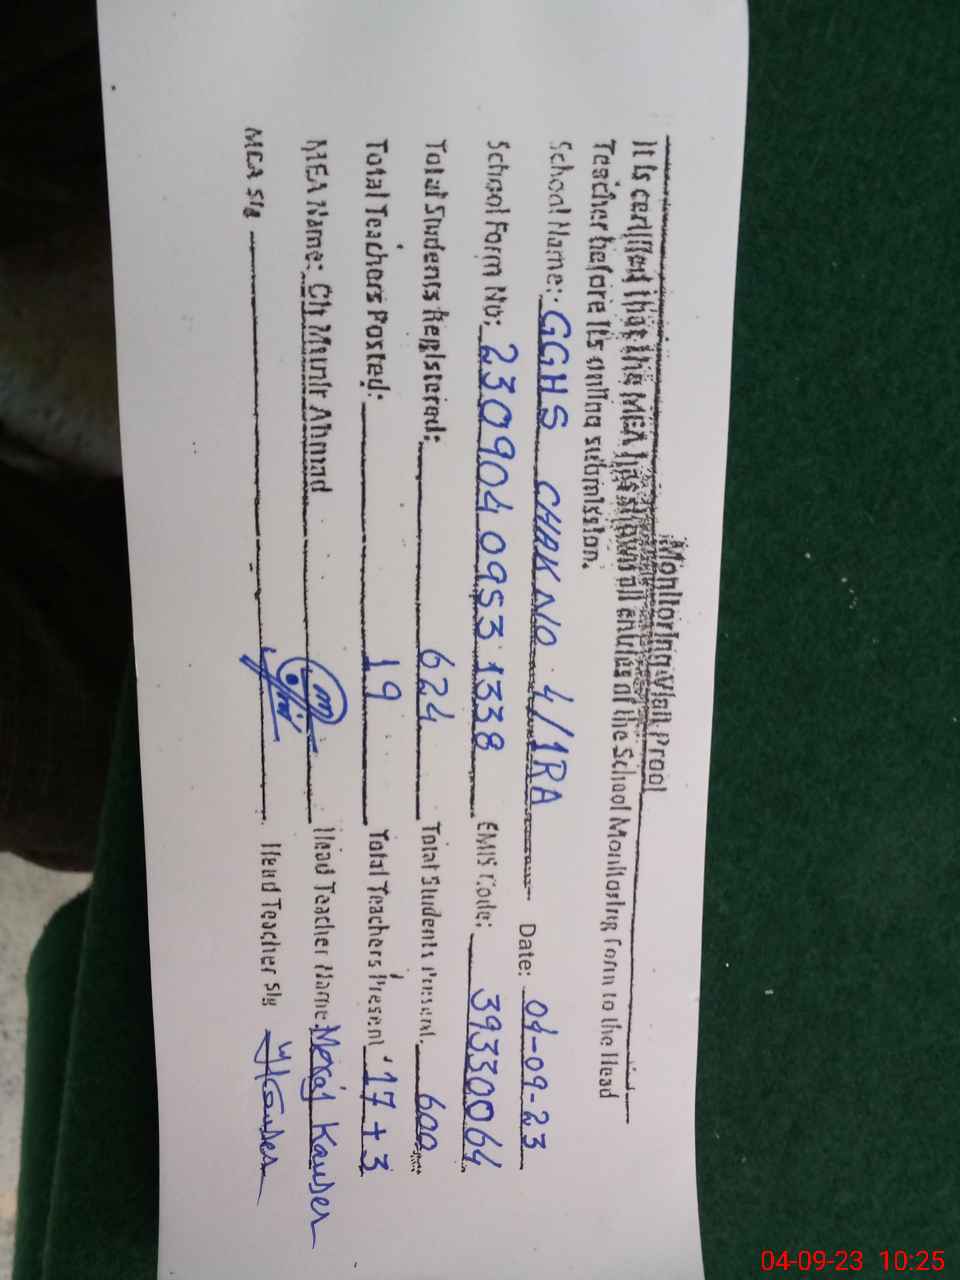 Monitoring Visit Proof
It is certified that the MEA has shown all entries of the School Monitoring Form to the Head
Teacher before it's online submission.
School Name: GGHS CHAK NO 4/1RA Date: 04-09-23
School Form No: 230904 0953 1338 EMIS Code: 39330064
Total Students Registered: 624 Total Students Present: 600
Total Teachers Posted: 19 Total Teachers Present 17+3
MEA Name: Ch Munir Ahmad Head Teacher Name: Meraj Kauser
MEA Sig Head Teacher Sig Kauser
04-09-23 10:25